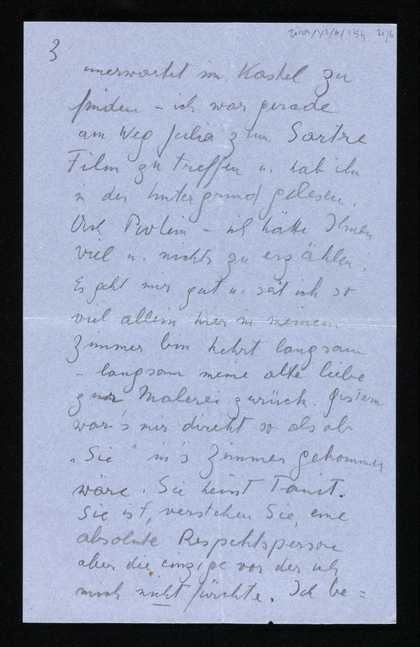 3
unerwartet im Kastel zu
finden – ich war gerade
am Weg Julia zum Sartre
Film zu treffen u. hab ihn
in der Untergrund gelesen.
Und Problem – ich hätte Ihnen
viel u. nichts zu erzählen.
Es geht mir gut u. seit ich so
viel allein hier in meinem
Zimmer bin kehrt langsam
– langsam meine alte Liebe
zur Malerei zurück. Gestern
war's mir direkt so als ob
„Sie" in's Zimmer gekommen
wäre. Sie heisst Tant.
Sie ist, verstehen Sie, eine
absolute Respektsperson
aber die einzige vor der ich
mich nicht fürchte. Ich be=